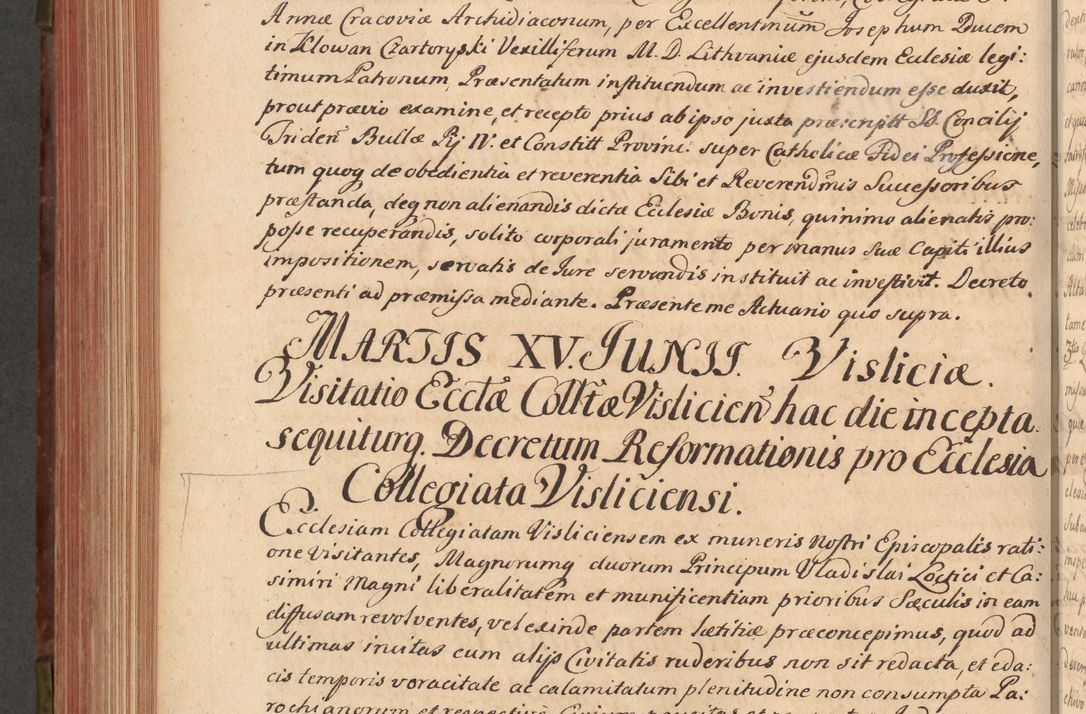 Annæ Cracoviæ Archidiaconum, per Excellentmum Josephum Ducem
in Klowan Czartoryski Vexilliferum M. D. Lithvaniæ ejusdem Eclesiæ legi:
timum Patronum, Præsentatum instituendum ac investiendum esse duxit,
prout prævio examine, et recepto prius ab ipso juxta præscriptt SS. Concilij
Triden Bullæ Pij IV. et Constitt Provinc: super Catholicæ Fidei Professione,
tum quoq de obedientia et reverentia Sibi et Reverendmis Successoribus
præstanda, deq non alienandis dictæ Ecclesiæ Bonis, quinimo alienatis pro:
posse recuperandis, solito corporali juramento per manus suæ Capiti illius
impositionem, servatis de Jure servandis instituit ac investivit. Decreto
præsenti ad præmissa mediante. Præsente me Actuario quo supra.
MARTIS XV. JUNII. Visliciæ.
Visitatio Ecctæ Colltæ Vislicien hac die incepta
sequiturq. Decretum Reformationis pro Ecclesia
Collegiata Visliciensi.
Ecclesiam Collegiatam Visliciensem ex muneris Nostri Episcopalis rati:
one Visitantes, Magnorumq duorum Principum Vladislai Loctici et Ca:
simiri Magni liberalitatem et munificentiam prioribus Sæculis in eam
diffusam revolventes, vel exinde partem lætitiæ præconcepimus, quod ad
ultimas incitas cum alijs Civitatis ruderibus non sit redacta, et eda:
cis temporis voracitate ac calamitatum plenitudine non consumpta Pa:
rochianorum et respective Civium